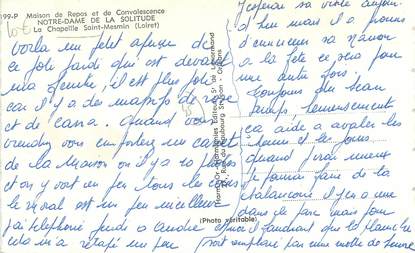 199-P Maison de Repos et de Convalescence
NOTRE-DAME DE LA SOLITUDE
La Chapelle Saint-Mesmin (Loiret)
Voila un petit aperçu de
ce joli jardin qui est devant
ma fenêtre, il est très joli
car il y a des massifs de rose
et de cana. quand vous
viendrez vous emporterez un carnet
de la Maison on il y a 10 photos
et on y voit un peu tous les
le moral est un peu meilleur
j'ai téléphoné jeudi a
cela m'a retapé un peu
(Photo véritable)
j'espérai sa visite aujour
d'hui mais il a promis
d'emmener sa Nanou
a la fête ce sera pour
une autre fois.
toujours du beau
temps heureusement
ca aide a avaler les
heures et les jours
quand j'irai mieux
je pourrai faire de la
balançoire il y en a une
dans le parc mais pour
il faudrait que la planche
soit remplacé par une motte de beurre